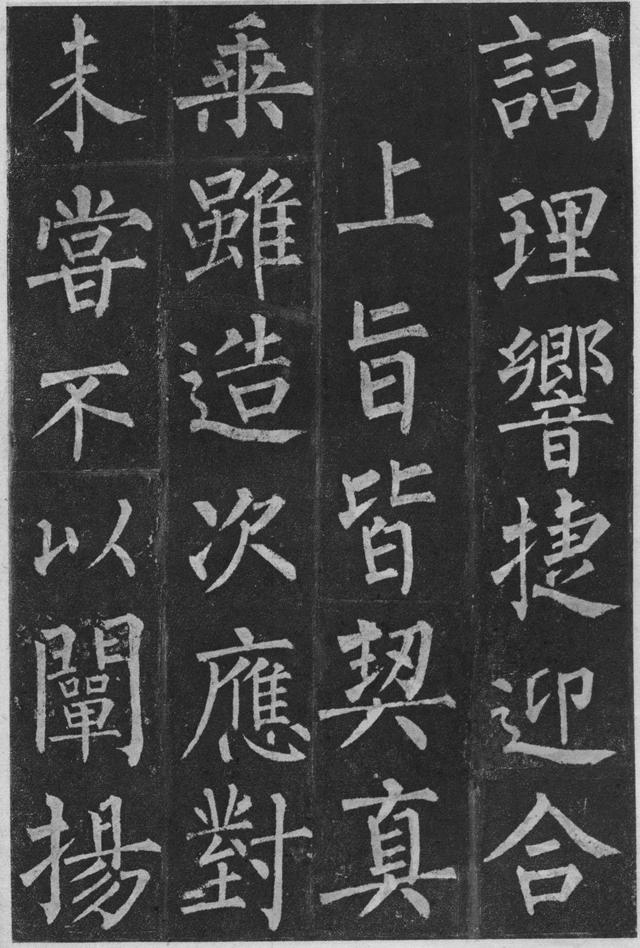 詞理響捷迎合
上旨皆契真
乗雖造次應對
未甞不以闡揚